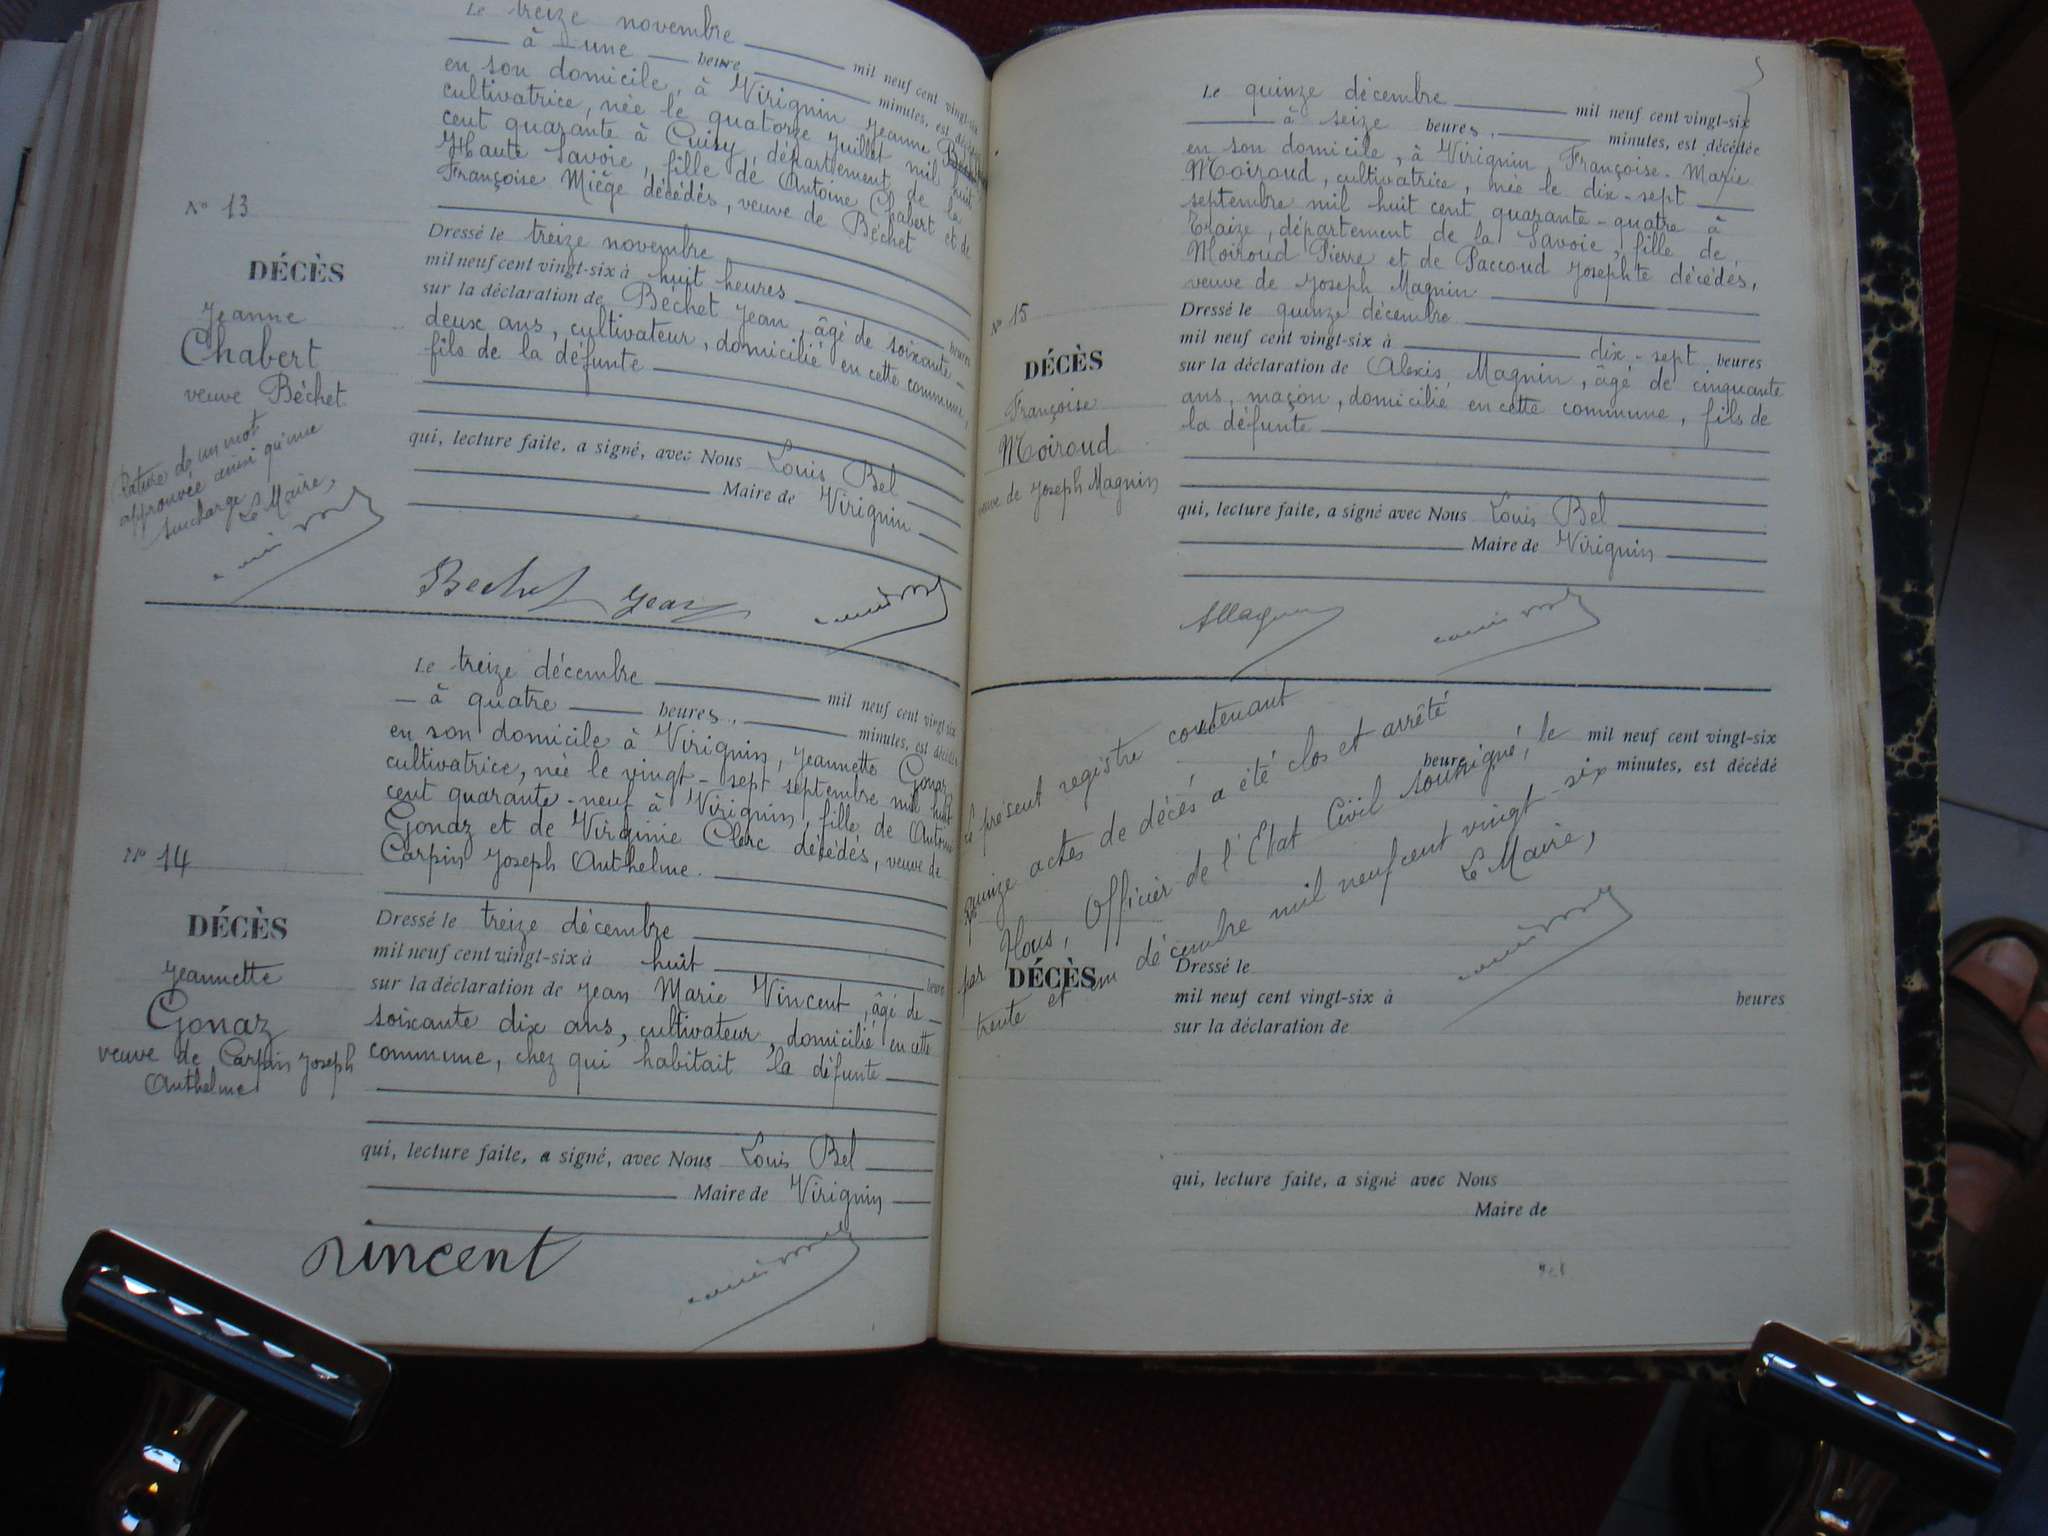 Le treize novembre mil neuf cent vingt-six
à une heure minutes, est décédée
en son domicile, à Virignin Jeanne
cultivatrice, née le quatorze juillet mil huit
cent quarante à Cuisy, département de la
Haute Savoie, fille de Antoine Chabert et de
Françoise Miège décédés, veuve de Béchet
N° 13
DÉCÈS
Jeanne
Chabert
veuve Béchet
Rature de un mot
approuvée ainsi qu'une
surcharge
Le Maire,
Dressé le treize novembre
mil neuf cent vingt-six à huit heures heures
sur la déclaration de Béchet Jean, âgé de soixante-
deux ans, cultivateur, domicilié en cette commune,
fils de la défunte
qui, lecture faite, a signé, avec Nous Louis Bel
Maire de Virignin
Bechet Jean
Le treize décembre mil neuf cent vingt-six
à quatre heures, minutes, est décédée
en son domicile à Virignin, Jeannette Gonaz
cultivatrice, née le vingt-sept septembre mil huit
cent quarante-neuf à Virignin, fille de Antoine
Gonaz et de Virginie Clerc décédés, veuve de
Carpin Joseph Anthelme.
N° 14
DÉCÈS
Jeannette
Gonaz
veuve de Carpin Joseph
Anthelme
Dressé le treize décembre
mil neuf cent vingt-six à huit heures
sur la déclaration de Jean Marie Vincent, âgé de
soixante dix ans, cultivateur, domicilié en cette
commune, chez qui habitait la défunte
qui, lecture faite, a signé, avec Nous Louis Bel
Maire de Virignin
Vincent
Le quinze décembre mil neuf cent vingt-six
à seize heures, minutes, est décédée
en son domicile, à Virignin, Françoise-Marie
Moiroud, cultivatrice, née le dix-sept
septembre mil huit cent quarante-quatre à
Traize, département de la Savoie, fille de
Moiroud Pierre et de Paccoud Josephte décédés,
veuve de Joseph Magnin.
N° 15
DÉCÈS
Françoise
Moiroud
veuve de Joseph Magnin
Dressé le quinze décembre
mil neuf cent vingt-six à dix-sept heures
sur la déclaration de Alexis Magnin, âgé de cinquante
ans, maçon, domicilié en cette commune, fils de
la défunte
qui, lecture faite, a signé avec Nous Louis Bel
Maire de Virignin
AMagnin
mil neuf cent vingt-six
heure minutes, est décédé
Le présent registre contenant
quinze actes de décès a été clos et arrêté
par Nous, Officier de l'Etat Civil soussigné, le
trente et un décembre mil neuf cent vingt-six
Le Maire,
DÉCÈS
Dressé le
mil neuf cent vingt-six à heures
sur la déclaration de
qui, lecture faite, a signé avec Nous
Maire de